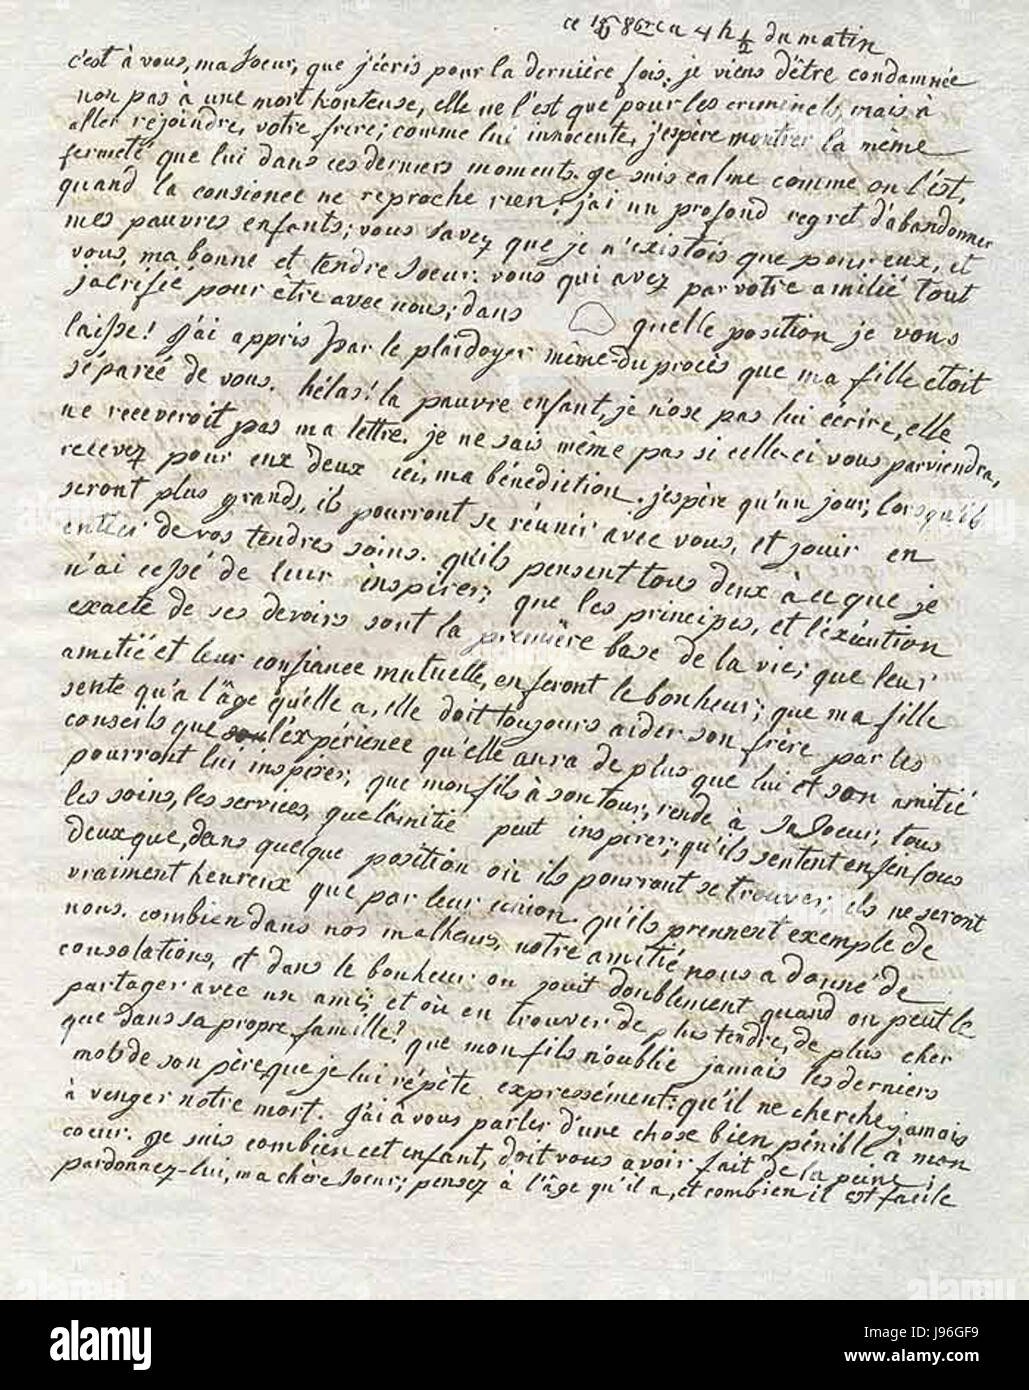 ce 16 8bre a 4 h ½ du matin
c'est à vous, ma Soeur, que j'écris pour la dernière fois. je viens d'être condamnée
non pas à une mort honteuse, elle ne l'est que pour les criminels, mais à
aller rejoindre, votre frere; comme lui innocente, j'espère montrer la même
fermeté que lui dans ces derniers moments. je suis calme comme on l'est,
quand la consience ne reproche rien; j'ai un profond regret d'abandonner
mes pauvres enfants; vous savez que je n'existois que pour eux, et
vous, ma bonne et tendre Soeur. vous qui avez par votre amitié tout
sacrifié pour être avec nous; dans quelle position je vous
laisse! j'ai appris par le plaidoyer même du procès que ma fille étoit
séparée de vous. hélas! la pauvre enfant, je n'ose pas lui ecrire, elle
ne receveroit pas ma lettre. je ne sais même pas si celle-ci vous parviendra,
recevez pour eux deux ici, ma bénédiction. j'espère qu'un jour, lorsqu'ils
seront plus grands, ils pourront se réunir avec vous, et jouir en
entier de vos tendres soins. qu'ils pensent tous deux à ce que je
n'ai cessé de leur inspirer; que les principes, et l'éxécution
exacte de ses devoirs sont la première base de la vie; que leur
amitié et leur confiance mutuelle, en feront le bonheur; que ma fille
sente qu'a l'âge qu'elle a, elle doit toujours aider son frère par les
conseils que l'expérience qu'elle aura de plus que lui et son amitié
pourront lui inspirer; que mon fils à son tour, rende à sa Soeur, tous
les soins, les services, que l'amitié peut inspirer; qu'ils sentent enfin tous
deux que, dans quelque position où ils pourront se trouver, ils ne seront
vraiment heureux que par leur union. qu'ils prennent exemple de
nous. combien dans nos malheurs, notre amitié nous a donné de
consolations, et dans le bonheur on jouit doublement quand on peut le
partager avec un ami; et où en trouver de plus tendre, de plus cher
que dans sa propre famille? que mon fils n'oublie jamais les derniers
mots de son père, que je lui répète expressément: qu'il ne cherche jamais
à venger notre mort. j'ai à vous parler d'une chose bien pénible à mon
coeur. je sais combien cet enfant, doit vous avoir fait de la peine;
pardonnez-lui, ma chère Soeur; pensez à l'âge qu'il a, et combien il est facile
alamy
Image ID: J96GF9
www.alamy.com